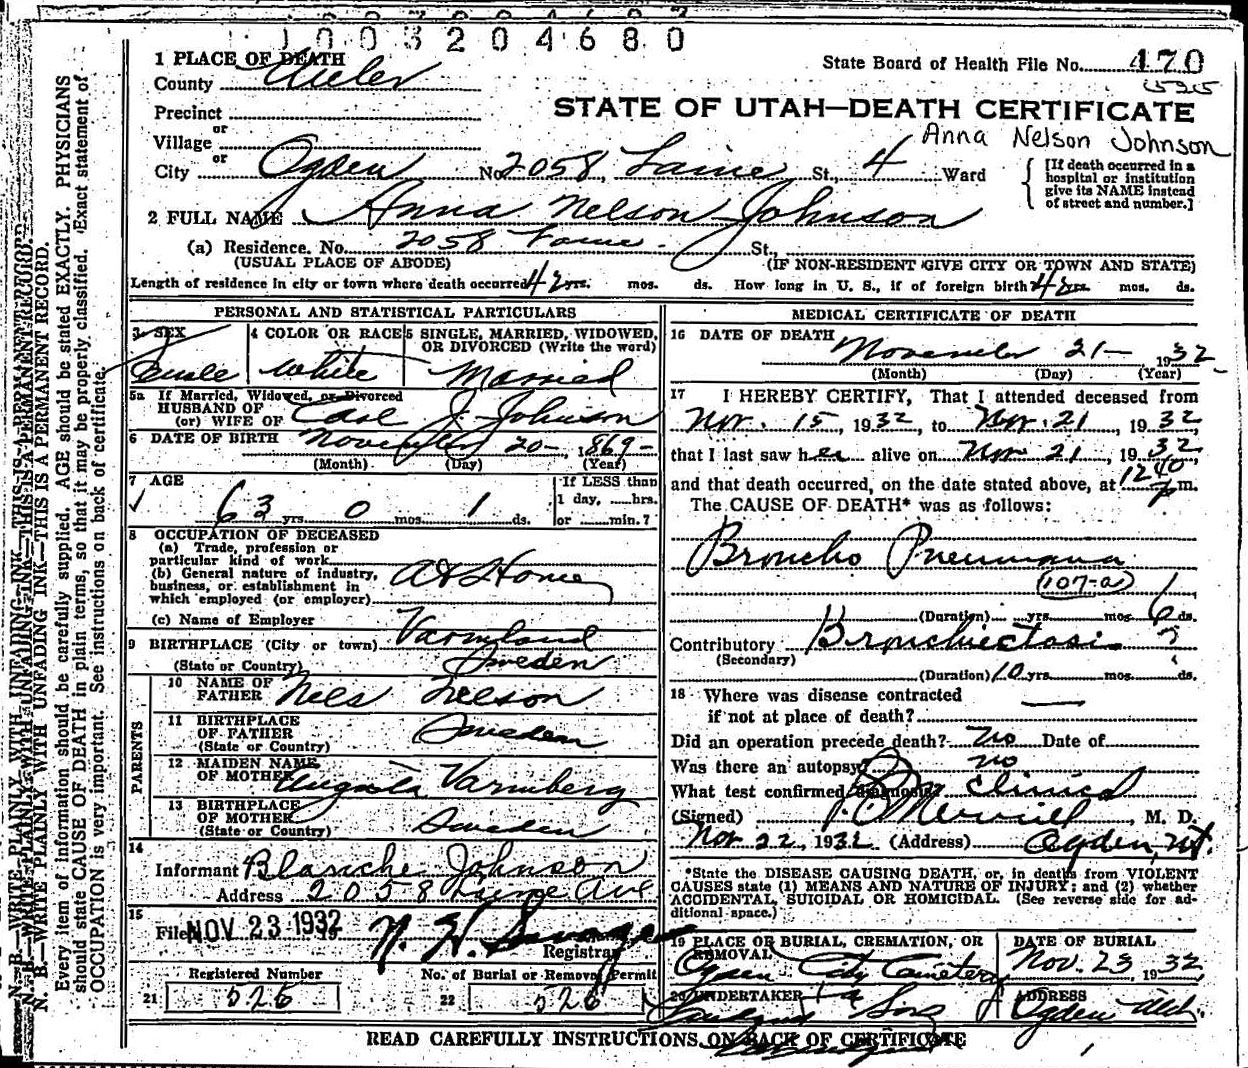 1003204680
1 PLACE OF DEATH
County Weber
State Board of Health File No. 470
Precinct
or
Village
or
STATE OF UTAH—DEATH CERTIFICATE
Anna Nelson Johnson
City Ogden No. 2058, St., 4 Ward
[If death occurred in a
hospital or institution
give its NAME instead
of street and number.]
2 FULL NAME Anna Nelson Johnson
(a) Residence. No. 2058 St.,
(USUAL PLACE OF ABODE) (IF NON-RESIDENT GIVE CITY OR TOWN AND STATE)
Length of residence in city or town where death occurred yrs. mos. ds. How long in U. S., if of foreign birth yrs. mos. ds.
PERSONAL AND STATISTICAL PARTICULARS
3 SEX
4 COLOR OR RACE White
5 SINGLE, MARRIED, WIDOWED,
OR DIVORCED (Write the word)
Married
5a If Married, Widowed, or Divorced
HUSBAND OF
(or) WIFE OF J. Johnson
6 DATE OF BIRTH November 20—, 1869—
(Month) (Day) (Year)
7 AGE
63 yrs. 0 mos. 1 ds.
If LESS than
1 day, hrs.
or min.?
8 OCCUPATION OF DECEASED
(a) Trade, profession or
particular kind of work
(b) General nature of industry,
business, or establishment in
which employed (or employer)
At Home
(c) Name of Employer
9 BIRTHPLACE (City or town) Varmland
(State or Country) Sweden
PARENTS
10 NAME OF
FATHER Nels Nelson
11 BIRTHPLACE
OF FATHER
(State or Country) Sweden
12 MAIDEN NAME
OF MOTHER Augusta Varmberg
13 BIRTHPLACE
OF MOTHER
(State or Country) Sweden
14
Informant Blanche Johnson
Address 2058 Ave
15
Filed NOV 23 1932 19
Registrar
Registered Number
21 526
No. of Burial or Removal Permit
22 526
MEDICAL CERTIFICATE OF DEATH
16 DATE OF DEATH
November 21— 1932
(Month) (Day) (Year)
17 I HEREBY CERTIFY, That I attended deceased from
Nov. 15, 1932, to Nov. 21, 1932,
that I last saw her alive on Nov 21, 1932,
and that death occurred, on the date stated above, at 1240 p m.
The CAUSE OF DEATH* was as follows:
Broncho Pneumonia
107-a
(Duration) yrs. mos. 6 ds.
Contributory Bronchiectasis ?
(Secondary)
(Duration) 10 yrs. mos. ds.
18 Where was disease contracted
if not at place of death? —
Did an operation precede death? No Date of
Was there an autopsy? No
What test confirmed diagnosis? Clinical
(Signed) Merrill, M. D.
Nov 22, 1932 (Address) Ogden, Ut.
*State the DISEASE CAUSING DEATH, or, in deaths from VIOLENT
CAUSES state (1) MEANS AND NATURE OF INJURY; and (2) whether
ACCIDENTAL, SUICIDAL OR HOMICIDAL. (See reverse side for ad-
ditional space.)
19 PLACE OF BURIAL, CREMATION, OR
REMOVAL
Ogden City Cemetery
DATE OF BURIAL
Nov. 23 1932
20 UNDERTAKER
& Sons
ADDRESS
Ogden Utah.
READ CAREFULLY INSTRUCTIONS ON BACK OF CERTIFICATE
N. B.—WRITE PLAINLY WITH UNFADING INK—THIS IS A PERMANENT RECORD.
Every item of information should be carefully supplied. AGE should be stated EXACTLY. PHYSICIANS
should state CAUSE OF DEATH in plain terms, so that it may be properly classified. Exact statement of
OCCUPATION is very important. See instructions on back of certificate.